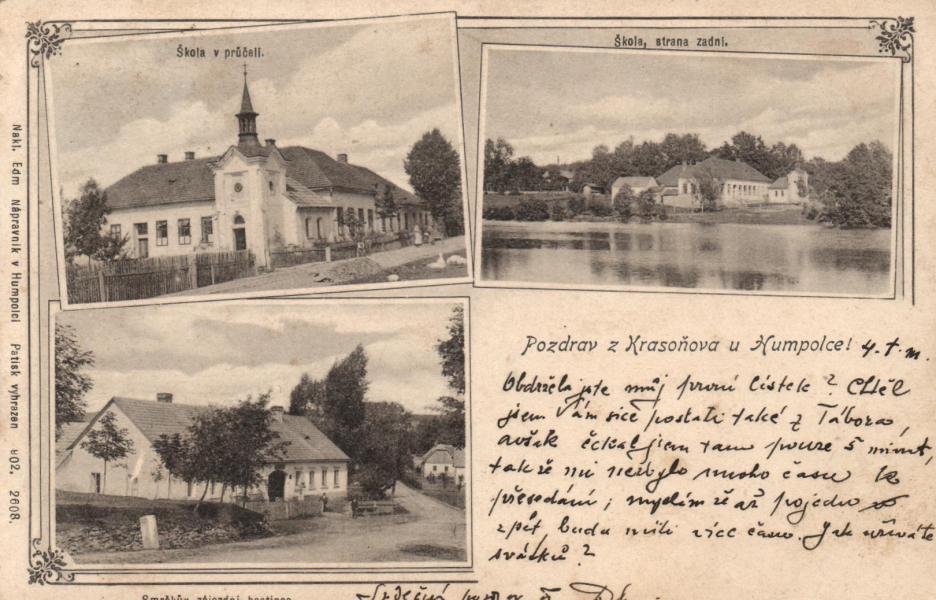 Škola v průčelí.
Škola, strana zadní.
Nakl. Edm Nápravník v Humpolci Patisk vyhrazen 602, 2608.
Pozdrav z Krasoňova u Humpolce! 4.
Obdržela jste můj první lístek? Chtěl
jsem Vám sice poslati také z Tábora,
avšak čekal jsem tam pouze 5 minut,
takže mi nezbylo mnoho času k
přesedání; myslím že až pojedu
zpět budu míti více času. Jak užíváte
svátků?
Smrčkův zájezdní hostinec
Srdečný